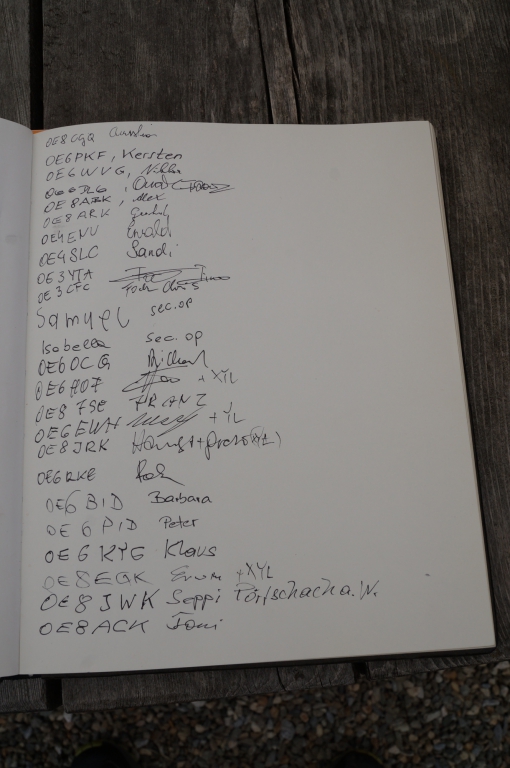 OE8CGQ
OE6PKF, Kersten
OE6WVG,
OE8ARK, Alex
OE8ARK
OE4ENU Ewald
OE4SLC Sandi
OE3YTA
OE3CFC Chris
Samuel sec.op
Isobella sec.op
OE6OCG Richard
OE6HOF + XYL
OE8FSE FRANZ
OE6EWH + YL
OE8JRK
OE6RKE
OE6BID Barbara
OE6PID Peter
OE6KYG Klaus
OE8EGK Erwin +XYL
OE8JWK Seppi Pörtschach a.W.
OE8ACK Toni